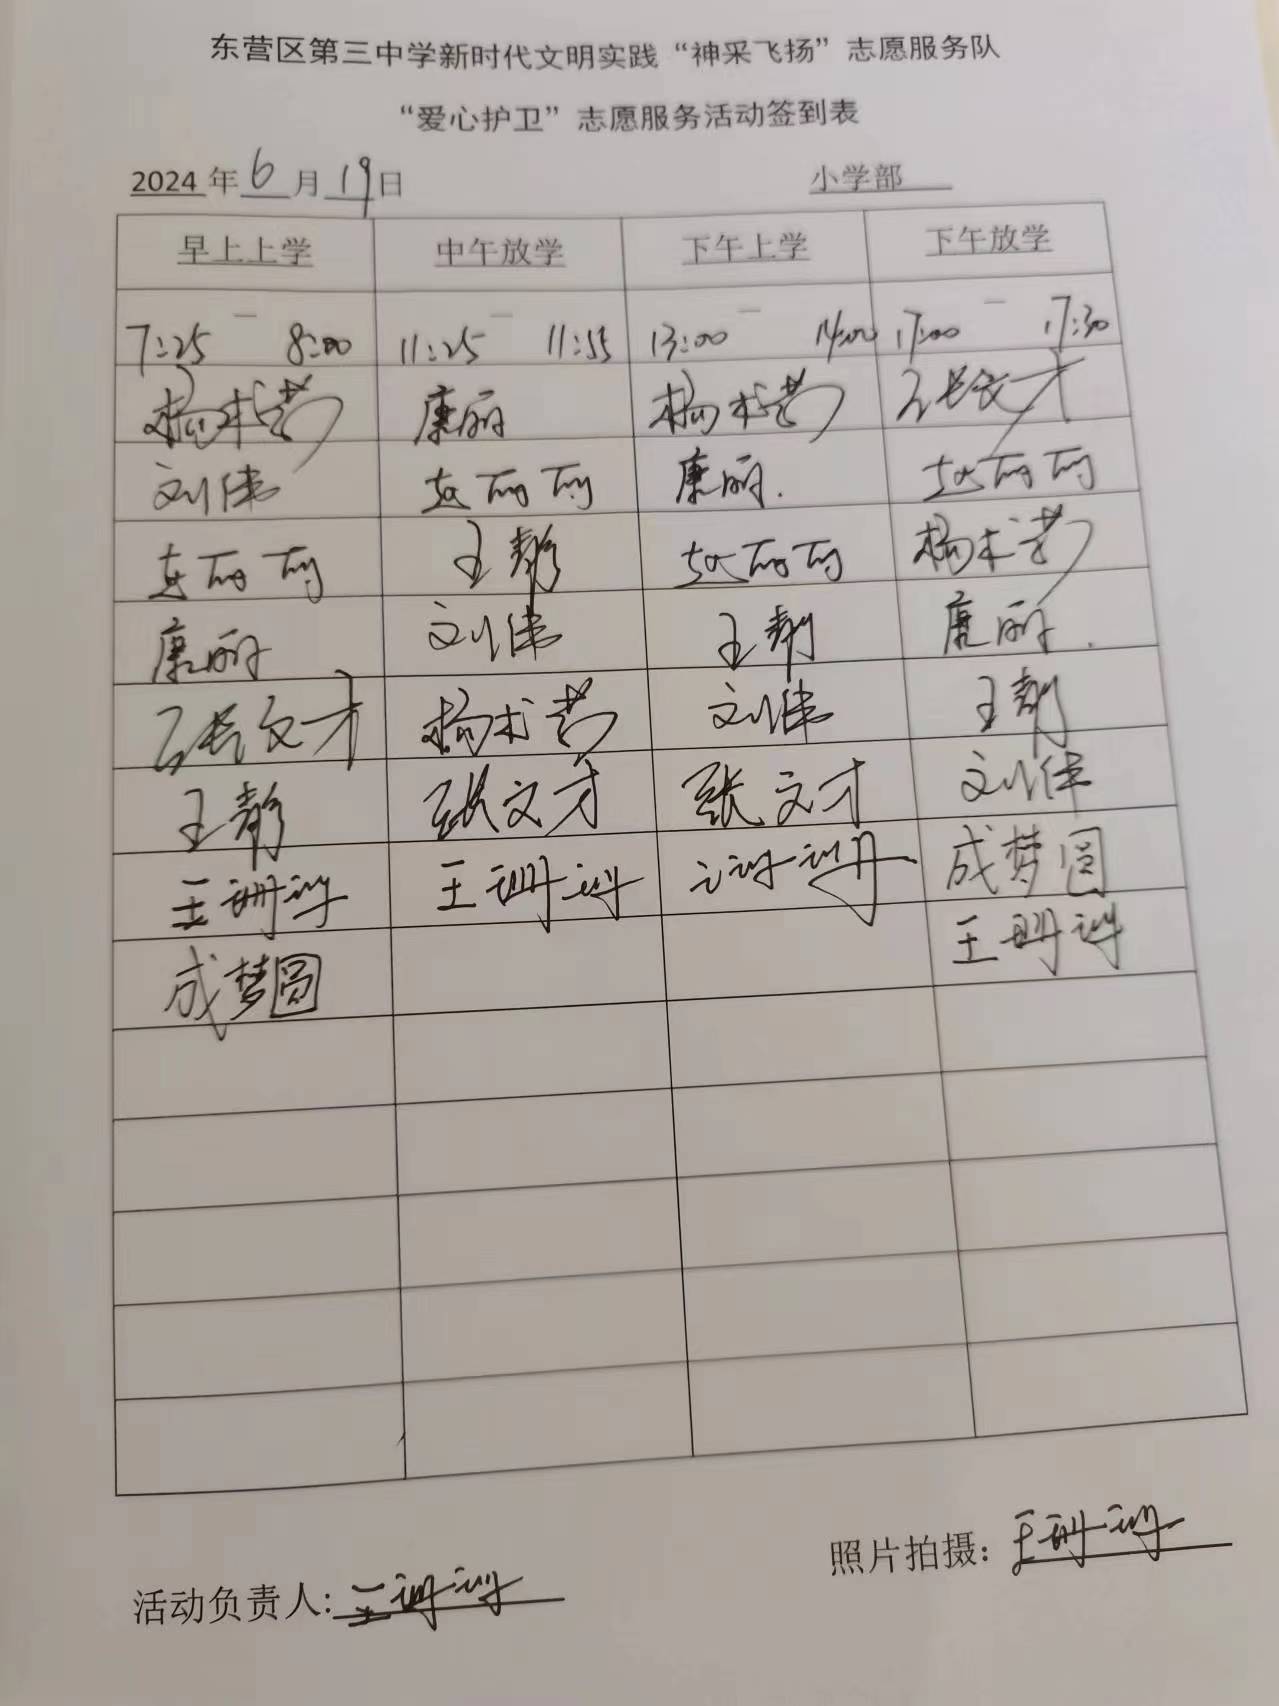 东营区第三中学新时代文明实践“神采飞扬”志愿服务队
“爱心护卫”志愿服务活动签到表
2024年6月19日 小学部
早上上学 中午放学 下午上学 下午放学
7:25 — 8:00 11:25 — 11:55 13:00 — 14:00 17:00 — 17:30
杨术芳 康丽 杨术芳 张文才
刘伟 赵丽丽 康丽. 赵丽丽
赵丽丽 王静 赵丽丽 杨术芳
康丽 刘伟 王静 康丽.
张文才 杨术芳 刘伟 王静
王静 张文才 张文才 刘伟
王珊珊 王珊珊 成梦圆
成梦圆 王珊珊
照片拍摄：王珊珊
活动负责人：王珊珊